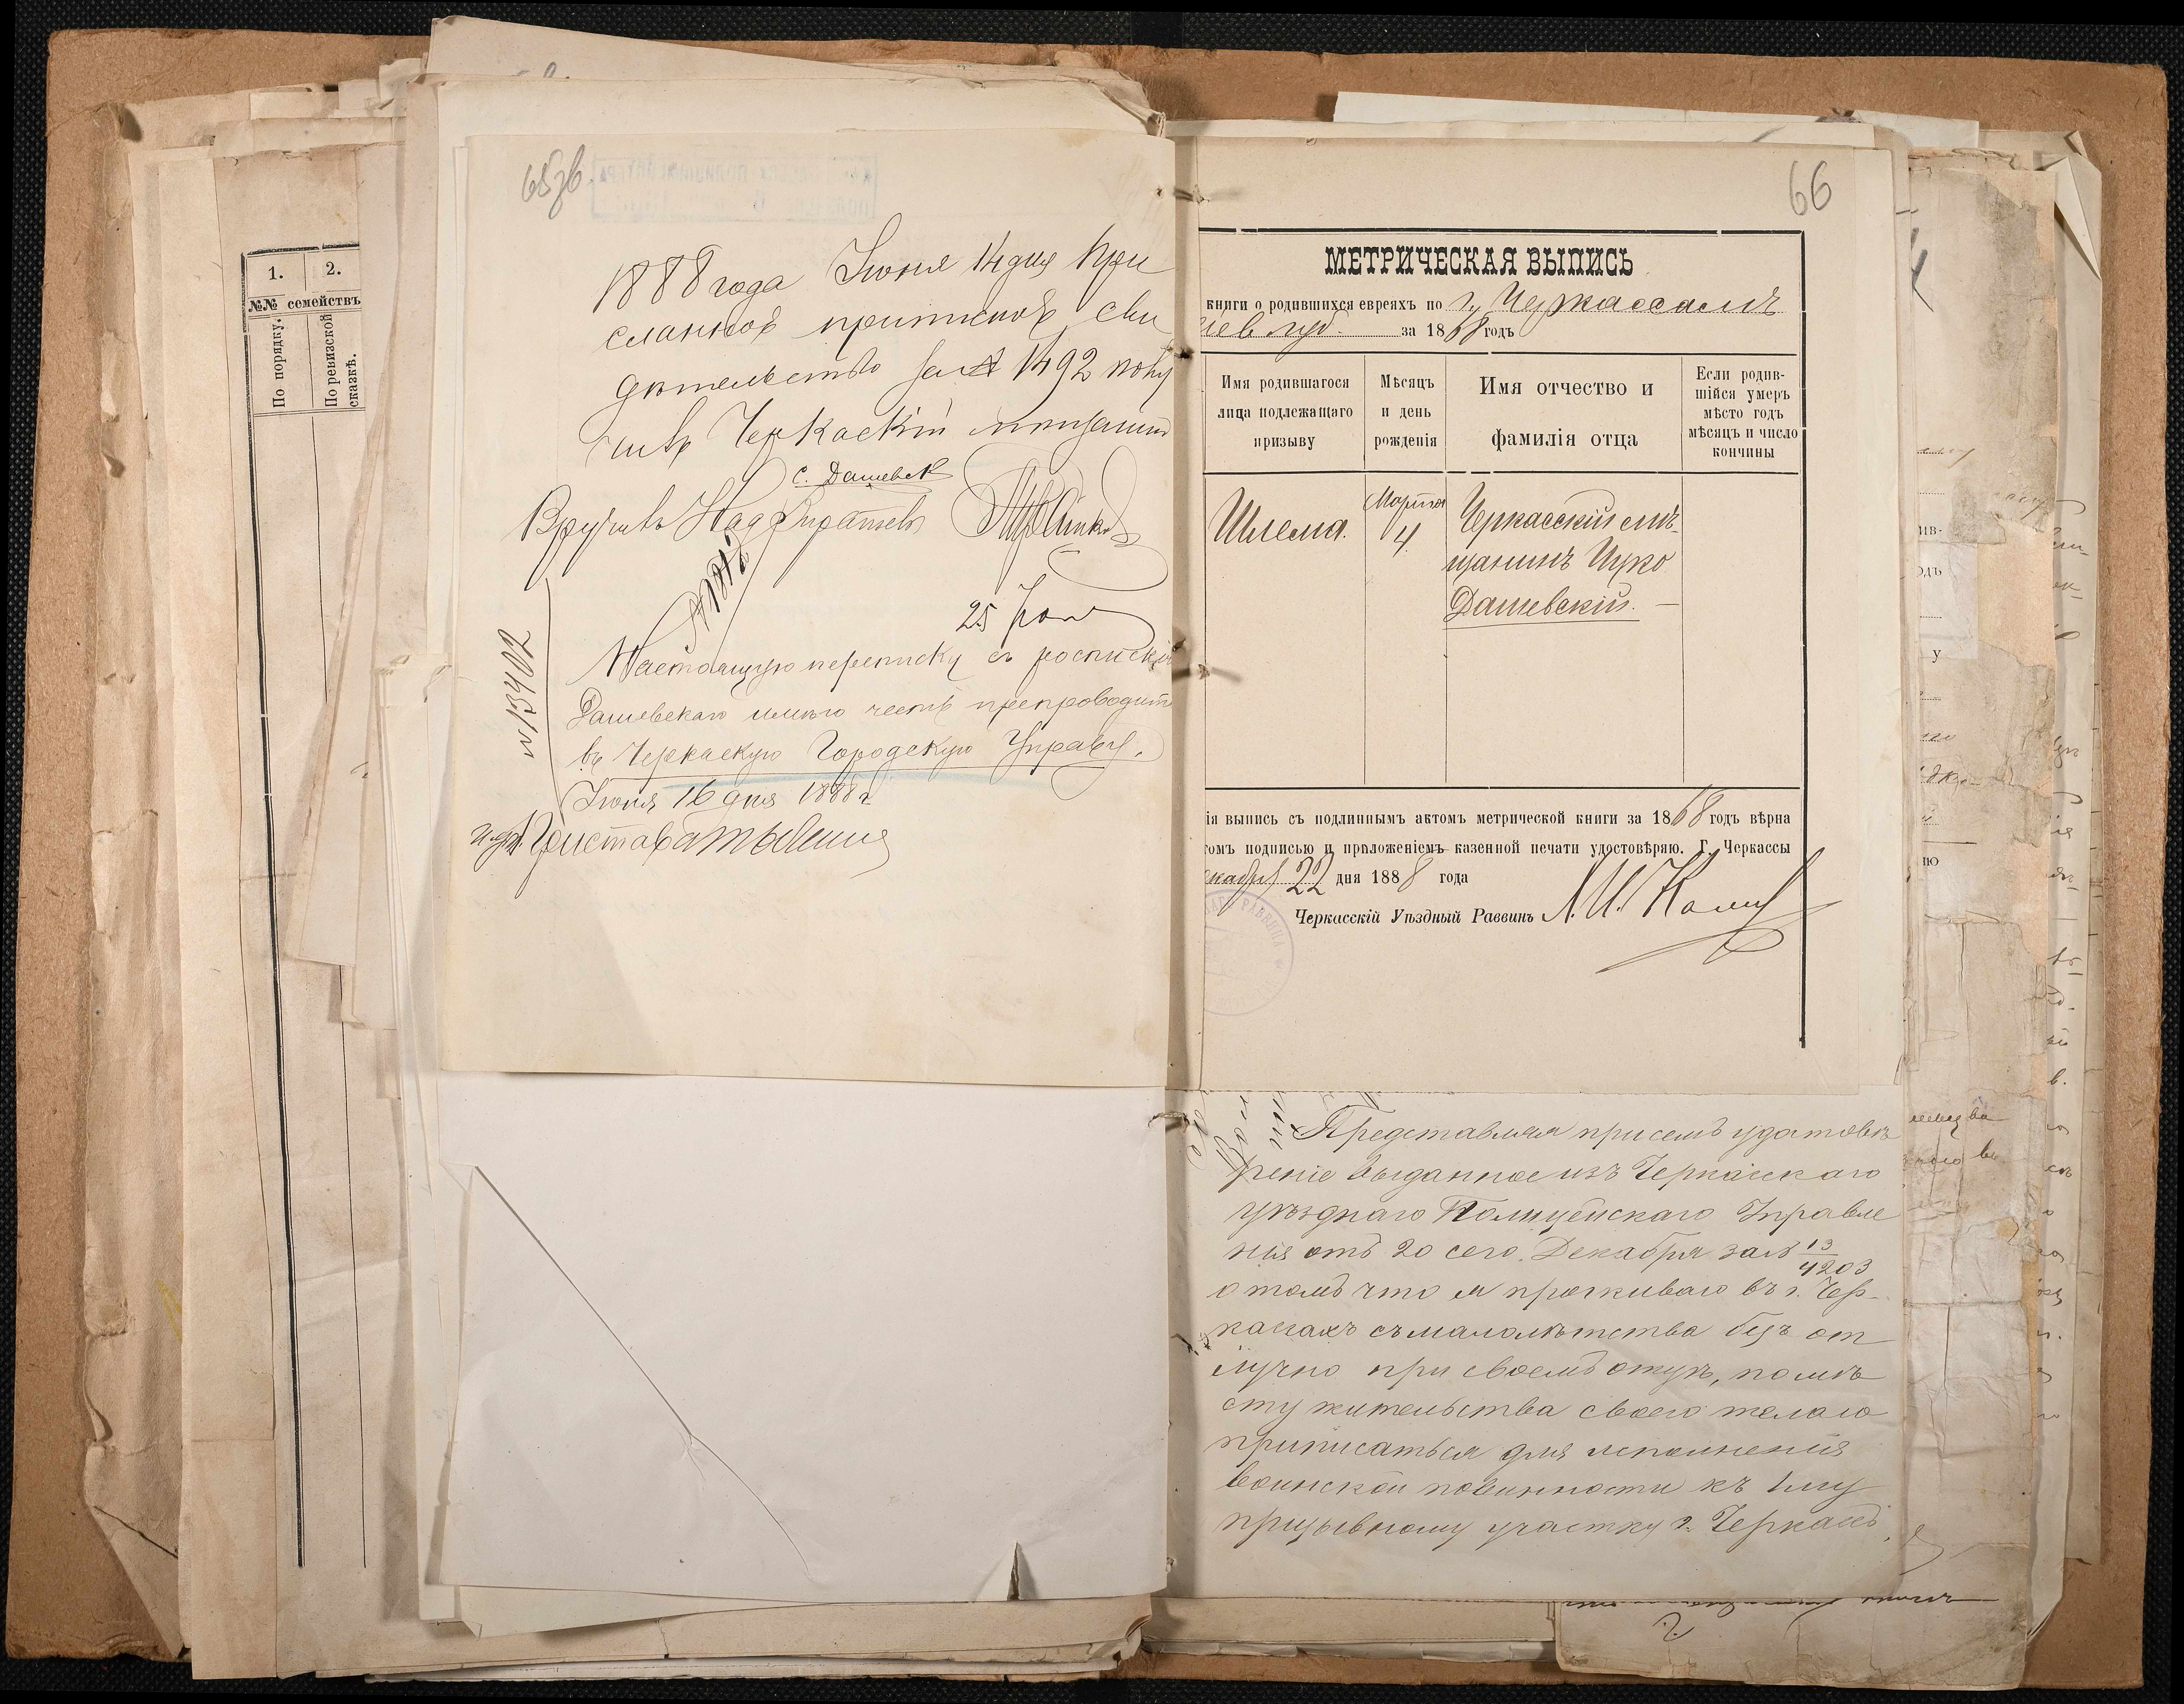 1.
2.
№№ семействъ
По порядку.
По ревизской
сказкѣ.
65зв.
1888 года Іюня 14 дня При
сланное приписное сви
дѣтельство за № 1492 полу
чивъ Черкаскій мищанинъ
С. Дашевск
Вручивъ Надзиратель
25 Іюня
№ 13402
Настоящую переписку съ роспискѣй
Дашевскаго имѣю честь препроводить
въ Черкаскую Городскую Управу.
Іюня 16 дня 1888 г.
Пристава
66
МЕТРИЧЕСКАЯ ВЫПИСЬ
книги о родившихся евреяхъ по г. Черкассамъ
іев губ. за 1868 годъ
Имя родившагося
лица подлежащаго
призыву
Мѣсяцъ
и день
рожденія
Имя отчество и
фамилія отца
Если родив-
шійся умеръ
мѣсто годъ
мѣсяцъ и число
кончины
Шлема.
Марта
4.
Черкасскій мѣ-
щанинъ Ицко
Дашевскій. —
ія выпись съ подлиннымъ актомъ метрической книги за 1868 годъ вѣрна
томъ подписью и приложеніемъ казенной печати удостовѣряю. Г. Черкассы
екабря 22 дня 1888 года
Черкасскій Уѣздный Раввинъ
РАВВИНА
Представляя при семъ удостовѣ
реніе выданное изъ Черкасскаго
уѣзднаго Полицейскаго Управле
нія отъ 20 сего Декабря за № 13/4203
о томъ что я проживаю въ г. Чер-
касахъ съ малолѣтства безъ от
лучно при своемъ отцѣ, по мѣ
сту жительства своего желаю
приписаться для исполненія
воинской повинности къ 1му
призывному участку г. Черкасъ,